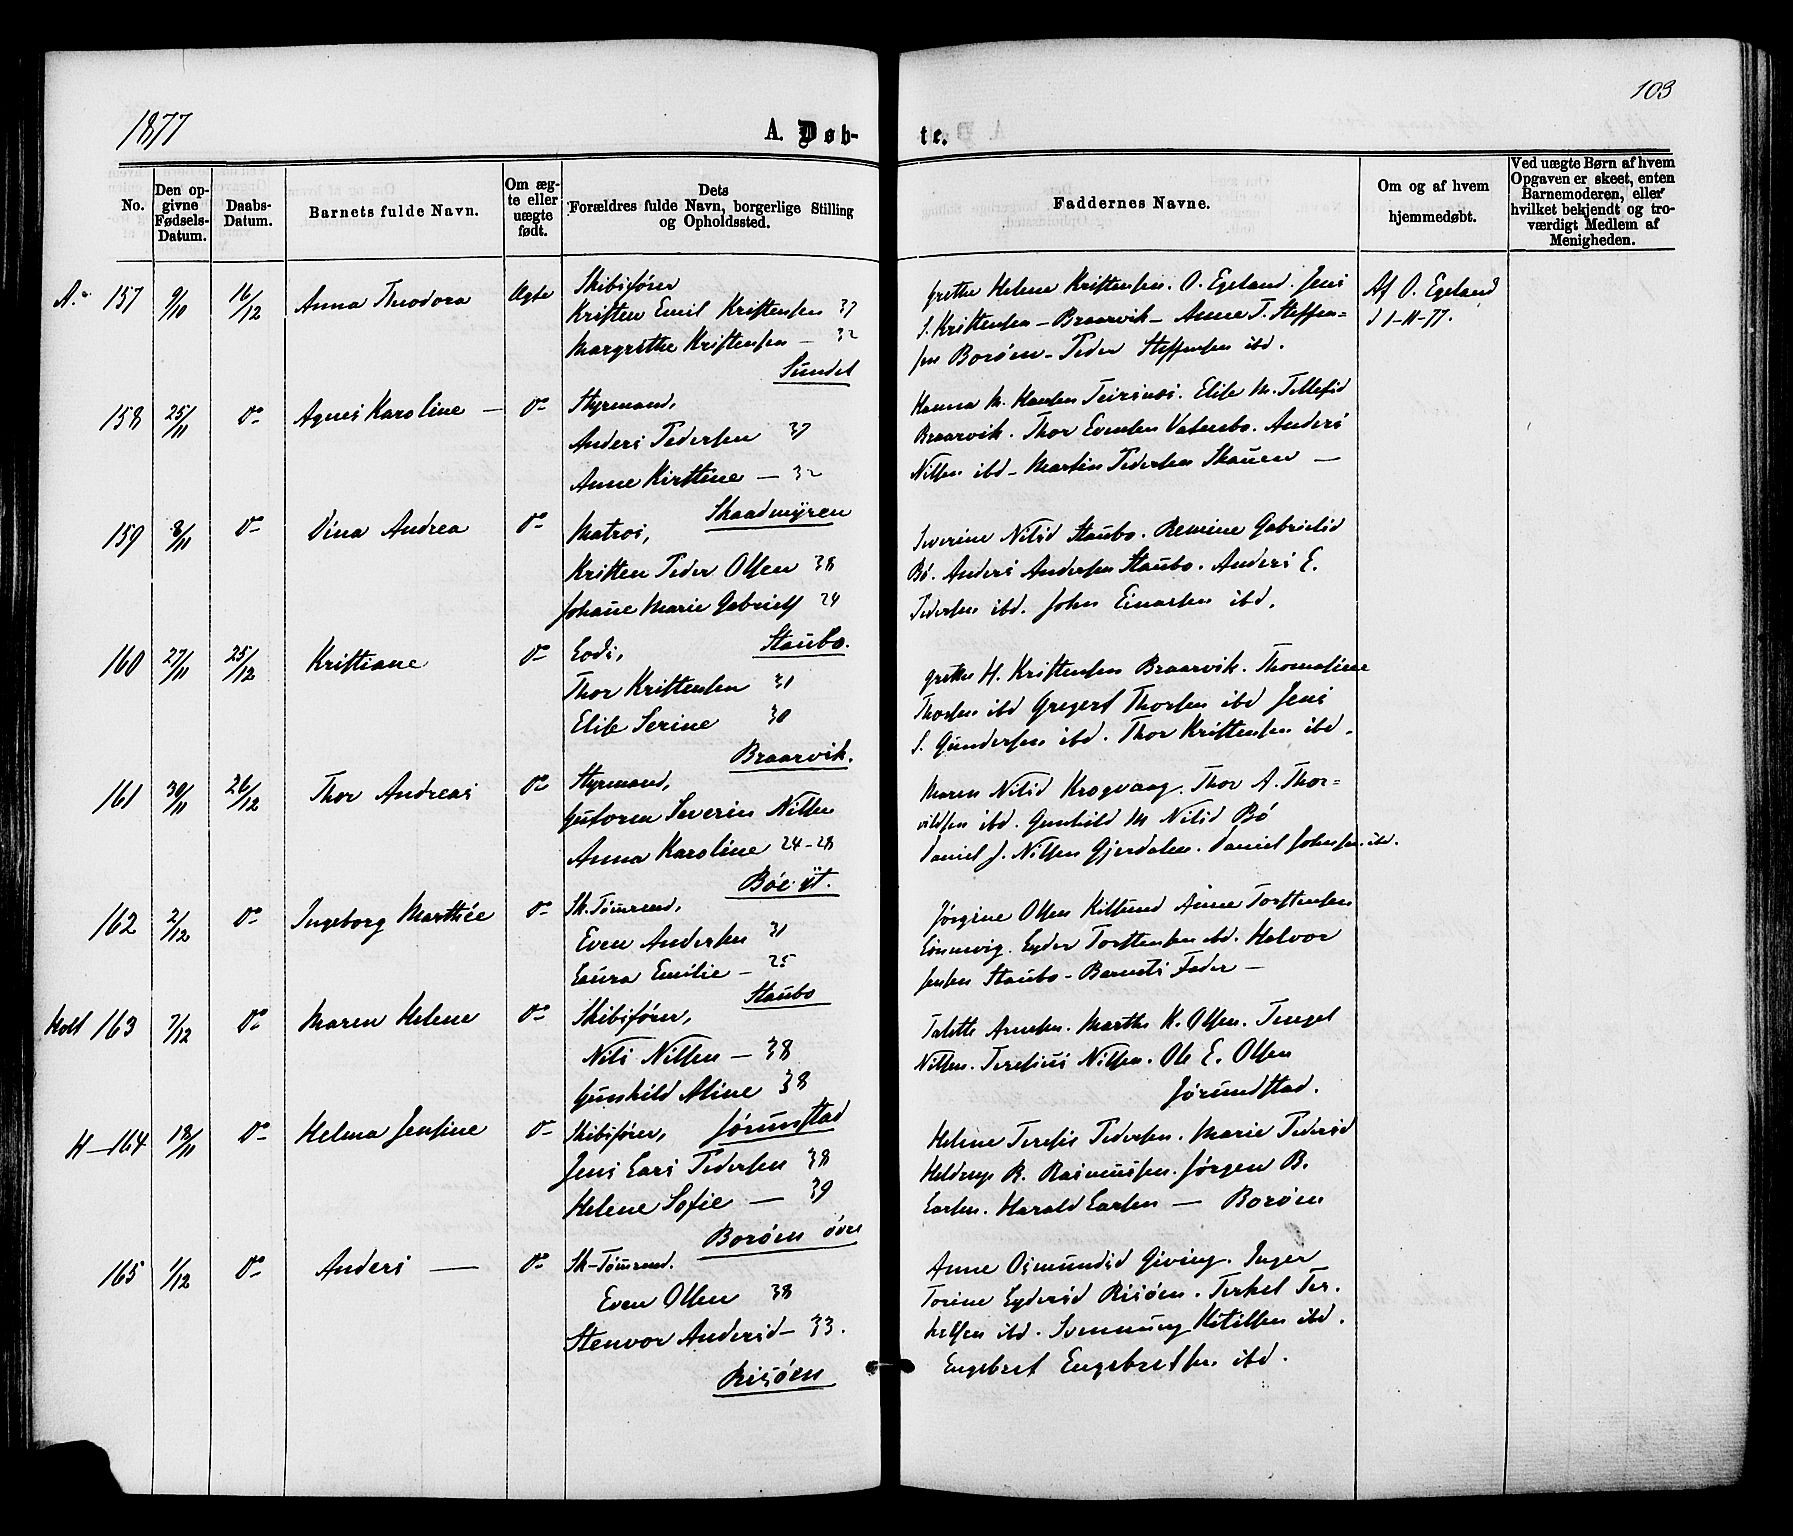 103
1877
A. Døb-
te.
No.
Den op-
givne
Fødsels-
Datum.
Daabs-
Datum.
Barnets fulde Navn.
Om æg-
te eller
uægte
født.
Dets
Forældres fulde Navn, borgerlige Stilling
og Opholdssted.
Faddernes Navne.
Om og af hvem
hjemmedøbt.
Ved uægte Børn af hvem
Opgaven er skeet, enten
Barnemoderen, eller
hvilket bekjendt og tro-
værdigt Medlem af
Menigheden.
A. 157 9/10 16/12 Anna Theodora Ægte Skibsfører
Kristen Emil Kristensen 37
Margrethe Kristensen - 32
Sundet
Grethe Helene Kristensen. O. Egeland. Jens
S. Kristensen - Braarvik - Anne T. Steffen-
sen Borøen - Peder Steffensen ibd.
Af O. Egeland
d 1-11-77.
158 25/11 do Agnes Karoline - do Styrmand,
Anders Pedersen 37
Anne Kirstine - 32
Skaadmyren
Hanna M. Hansen Teirsnæs. Elise M. Tellefsd
Braarvik. Thor Evensen Vatnebo. Anders
Nilsen ibd - Martin Pedersen Skauen -
159 8/11 do Dina Andrea do Matros,
Kristen Peder Olsen 38
Johanne Marie Gabriels 24
Staubo.
Severine Nilsd Staubo. Remine Gabrielsd
Bö. Anders Andersen Staubo. Anders E.
Pedersen ibd. John Einarsen ibd.
160 27/11 25/12 Kristiane do Lods,
Thor Kristensen 31
Elise Serine 30
Braarvik.
Grethe H. Kristensen Braarvik. Thomasine
Thorsen ibd Gregert Thorsen ibd Jens
S. Gundersen ibd. Thor Kristensen ibd.
161 30/11 26/12 Thor Andreas do Styrmand,
Gutorm Severin Nilsen
Anna Karoline 24-28
Böe yt.
Maren Nilsd Krogvaag. Thor A. Thor-
vildsen ibd. Gunhild M Nilsd Bö
Daniel J. Nilsen Gjerdalen. Daniel Johnsen ibd.
162 2/12 do Ingeborg Marthee do Sk. Tömrmd,
Even Andersen 31
Laura Emilie - 25
Staubo
Jørgine Olsen Kilsund Anne Torstensen
Lönnevig. Eyder Torstensen ibd. Halvor
Jensen Staubo - Barnets Fader -
Holt 163 7/12 do Maren Helene do Skibsfører,
Nils Nilsen - 38
Gunhild Aline 38
Jørunstad
Talette Arntsen. Marthe K. Olsen. Tengel
Nilsen. Teresius Nilsen. Ole E. Olsen
Jørundstad.
H - 164 18/11 do Helma Jensine do Skibsfører,
Jens Lars Pedersen 38
Helene Sofie - 39
Borøen övre
Helene Teresie Pedersen. Marie Pedersd
Heldrup R. Rasmussen. Jørgen B.
Larsen. Harald Larsen - Borøen
165 1/12 do Anders - do Sk-Tömrmd.
Even Olsen 38
Stenvor Andersd - 33.
Risøen
Anne Osmundsd Giving. Inger
Torine Eydersd Risøen. Terkel Ter-
kelsen ibd. Svennung Ketilsen ibd.
Engebret Engebretsen ibd.